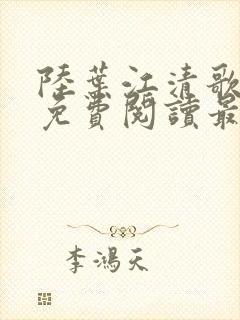 陸葉江清歌
免費閱讀最
李鴻天